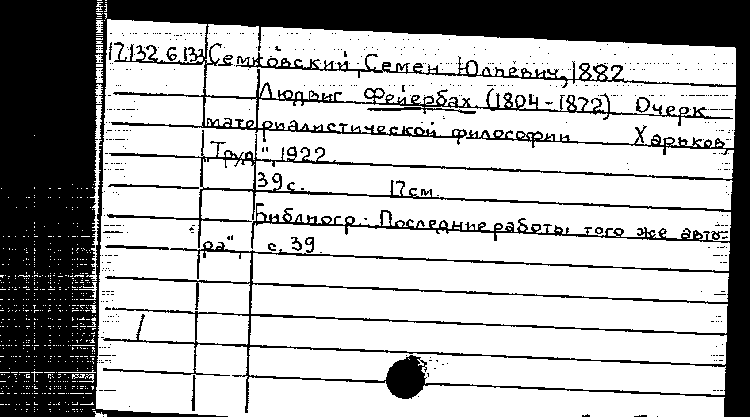 17.132.6.133 Семковский, Семен Юльевич, 1882
Людвиг Фейербах (1804-1872) Очерк
материалистической философии Харьков,
"Труд", 1922.
39 с. 17 см.
Библиогр.: "Последние работы того же авто-
ра", с. 39